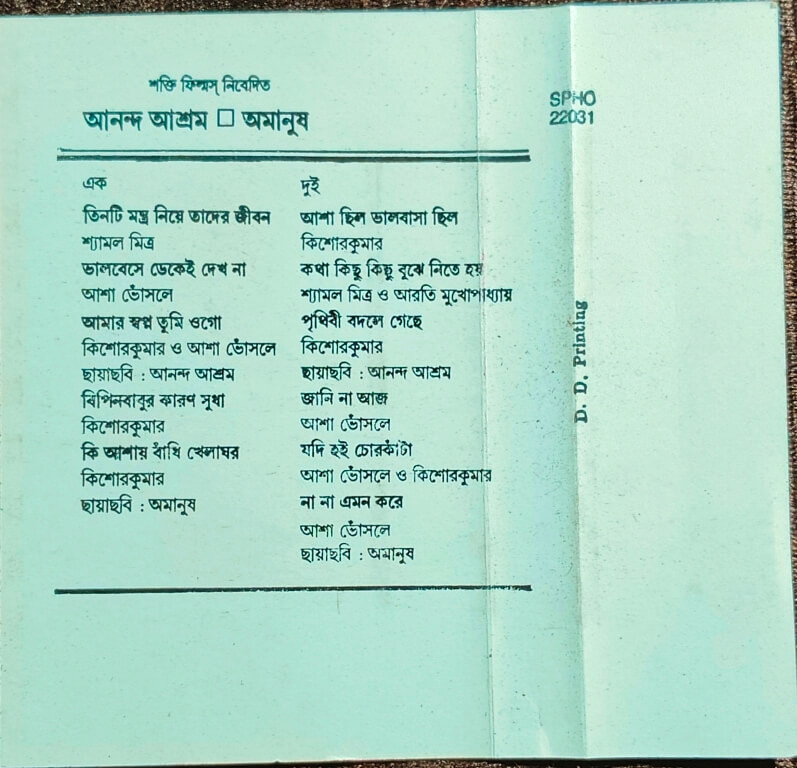 শক্তি ফিল্মস্ নিবেদিত
আনন্দ আশ্রম □ অমানুষ
SPHO
22031
এক
তিনটি মন্ত্র নিয়ে তাদের জীবন
শ্যামল মিত্র
ভালবেসে ডেকেই দেখ না
আশা ভোঁসলে
আমার স্বপ্ন তুমি ওগো
কিশোরকুমার ও আশা ভোঁসলে
ছায়াছবি : আনন্দ আশ্রম
বিপিনবাবুর কারণ সুধা
কিশোরকুমার
কি আশায় বাঁধি খেলাঘর
কিশোরকুমার
ছায়াছবি : অমানুষ
দুই
আশা ছিল ভালবাসা ছিল
কিশোরকুমার
কথা কিছু কিছু বুঝে নিতে হয়
শ্যামল মিত্র ও আরতি মুখোপাধ্যায়
পৃথিবী বদলে গেছে
কিশোরকুমার
ছায়াছবি : আনন্দ আশ্রম
জানি না আজ
আশা ভোঁসলে
যদি হই চোরকাঁটা
আশা ভোঁসলে ও কিশোরকুমার
না না এমন করে
আশা ভোঁসলে
ছায়াছবি : অমানুষ
D. D. Printing